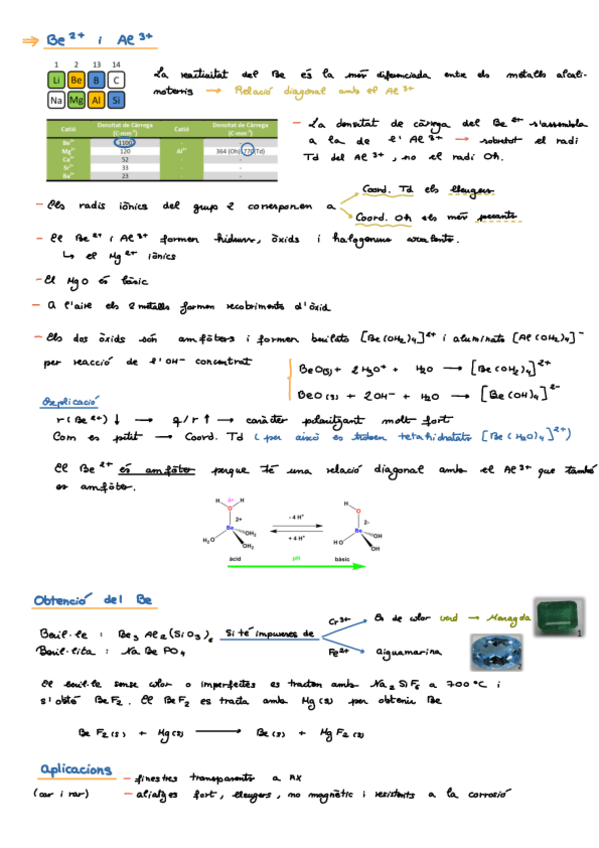 ⇒ Be²⁺ i Al³⁺
1 2 13 14
Li Be B C
Na Mg Al Si
La reactivitat del Be és la més diferenciada entre els metalls alcali-
noterris → Relació diagonal amb el Al³⁺
Catió Densitat de Càrrega (C·mm⁻³) Catió Densitat de Càrrega (C·mm⁻³)
Be²⁺ 1100 - -
Mg²⁺ 120 Al³⁺ 364 (Oh), 770(Td)
Ca²⁺ 52 - -
Sr²⁺ 33 - -
Ba²⁺ 23 - -
- La densitat de càrrega del Be²⁺ s'assembla
a la de l'Al³⁺ → sobretot el radi
Td del Al³⁺, no el radi Oh.
- Els radis iònics del grup 2 corresponen a
Coord. Td els lleugers
Coord. Oh els més pesants
- El Be²⁺ i Al³⁺ formen hidrurs, òxids i halogenurs covalents.
↳ el Mg²⁺ iònics
- El MgO és bàsic
- A l'aire els 2 metalls formen recobriments d'òxid
- Els dos òxids són amfòters i formen beril·lats [Be(OH₂)₄]²⁺ i aluminats [Al(OH₂)₄]⁻
per reacció de l'OH⁻ concentrat
BeO(s) + 2H₃O⁺ + H₂O → [Be(OH₂)₄]²⁺
BeO(s) + 2OH⁻ + H₂O → [Be(OH)₄]²⁻
Explicació
r(Be²⁺) ↓ → q/r ↑ → caràcter polaritzant molt fort
Com es petit → Coord. Td (per això es troben tetrahidratats [Be(H₂O)₄]²⁺)
El Be²⁺ és amfòter perque té una relació diagonal amb el Al³⁺ que també
es amfòter.
H δ+ H
O
2+
Be
H₂O OH₂
OH₂
- 4 H⁺
+ 4 H⁺
H
O
2-
Be
HO OH
OH
àcid pH bàsic
Obtenció del Be
Beril·le : Be₃Al₂(SiO₃)₆ Si té impureses de
Cr³⁺ Es de color verd → Maragda
1
Beril·lita : NaBePO₄
Fe²⁺ aiguamarina
2
El beril·le sense color o imperfectes es tracten amb Na₂SiF₆ a 700°C i
s'obté BeF₂. El BeF₂ es tracta amb Mg(s) per obtenir Be
BeF₂(s) + Mg(s) → Be(s) + MgF₂(s)
Aplicacions
(car i rar)
- finestres transparents a RX
- aliatges fort, lleugers, no magnètic i resistents a la corrosió